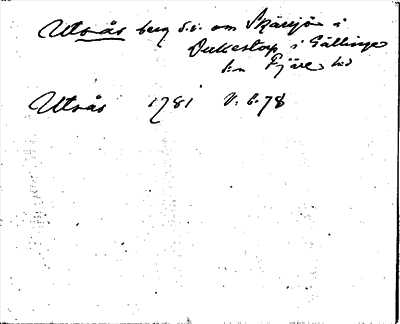 Utsås berg s.v. om Skärsjö i
Dukestorp i Gällinge
sn Fjäre hd
Utsås 1781 V. 6.78